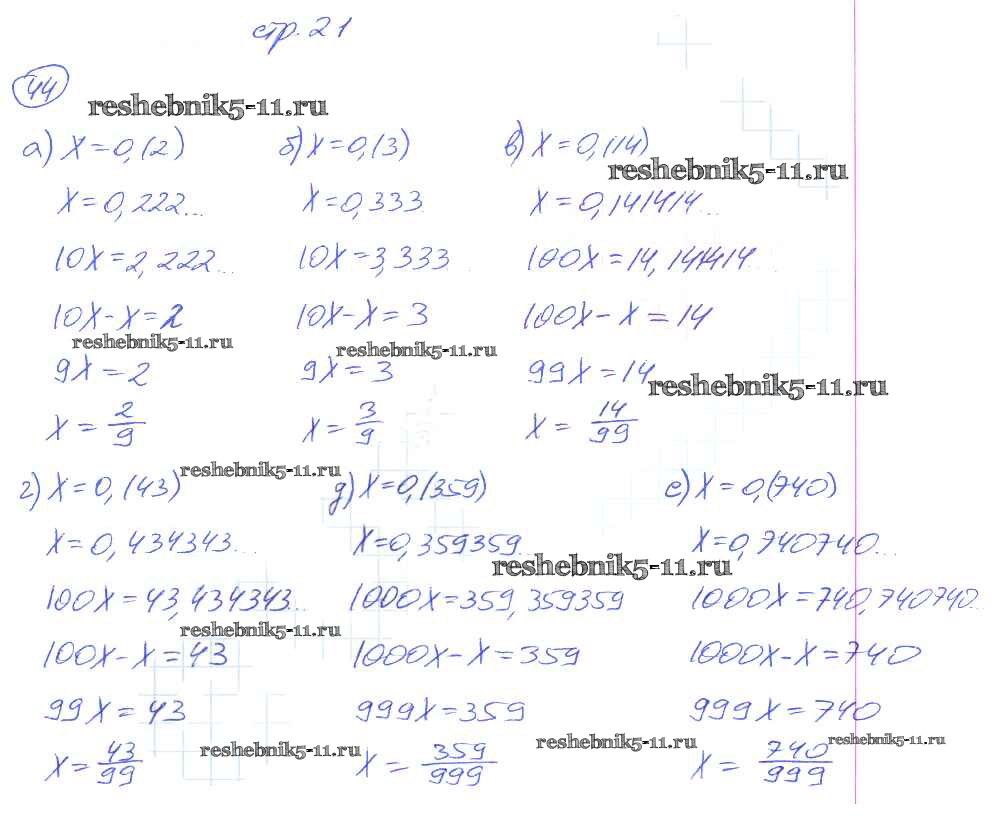 стр. 21
44
reshebnik5-11.ru
а) x=0,(2) б) x=0,(3) в) x=0,(14)
reshebnik5-11.ru
x=0,222... x=0,333 x=0,141414...
10x=2,222... 10x=3,333 100x=14,141414
10x-x=2 10x-x=3 100x-x=14
reshebnik5-11.ru reshebnik5-11.ru
9x=2 9x=3 99x=14
reshebnik5-11.ru
x=2/9 x=3/9 x=14/99
reshebnik5-11.ru
г) x=0,(43) д) x=0,(359) е) x=0,(740)
x=0,434343... x=0,359359... x=0,740740...
reshebnik5-11.ru
100x=43,434343... 1000x=359,359359 1000x=740,740740...
reshebnik5-11.ru
100x-x=43 1000x-x=359 1000x-x=740
99x=43 999x=359 999x=740
reshebnik5-11.ru reshebnik5-11.ru reshebnik5-11.ru
x=43/99 x=359/999 x=740/999